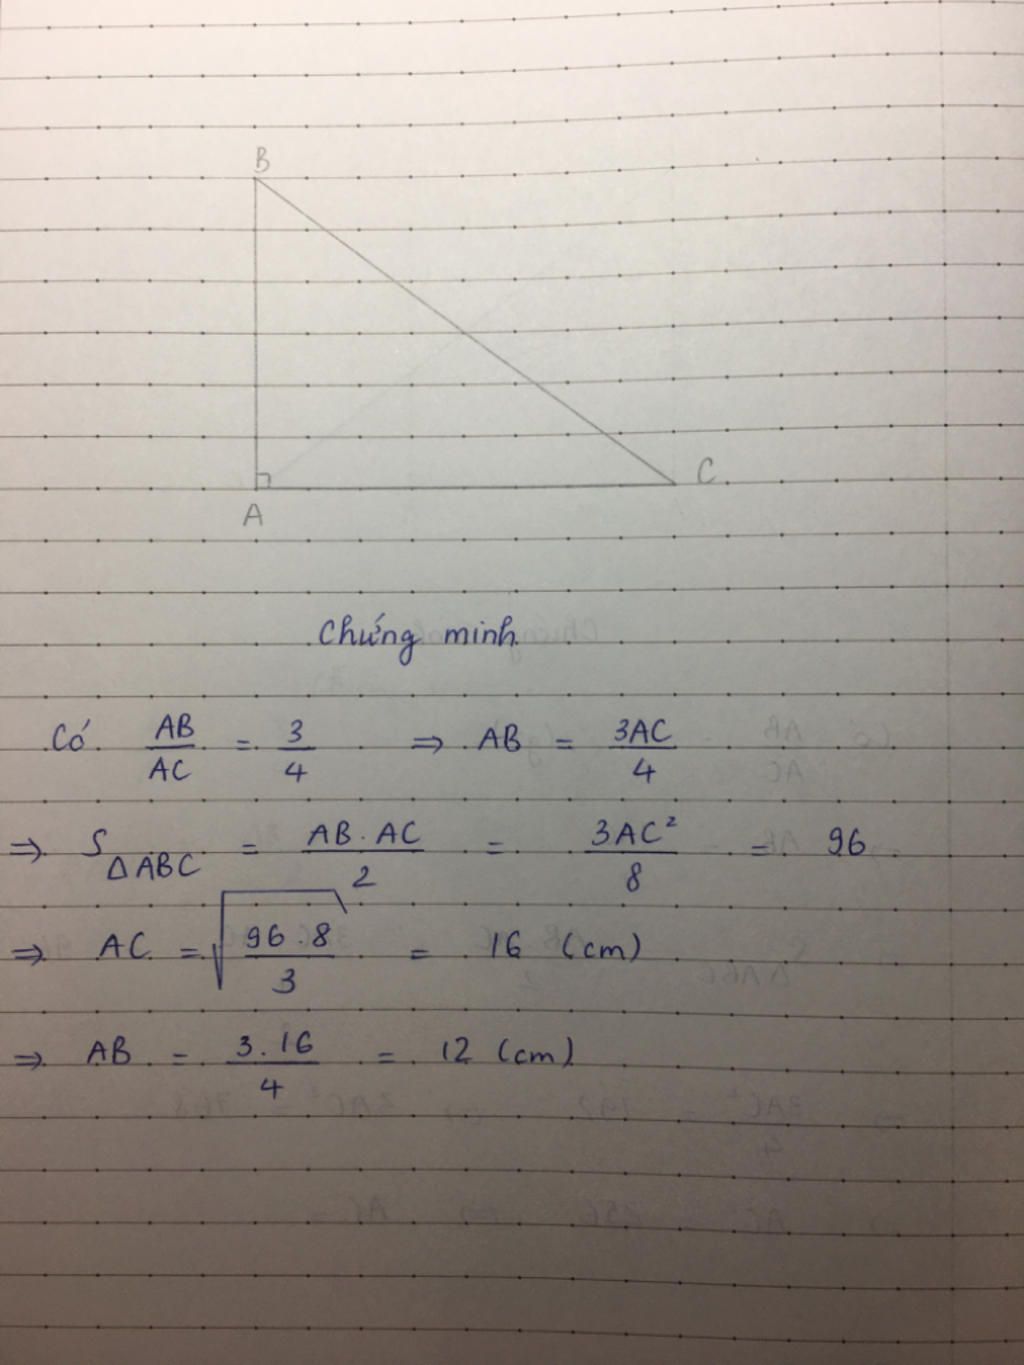 B
C
A
Chứng minh
Có AB/AC = 3/4 ⇒ AB = 3AC/4
⇒ S ΔABC = AB . AC/2 = 3AC²/8 = 96
⇒ AC = √(96 . 8/3) = 16 (cm)
⇒ AB = 3.16/4 = 12 (cm)